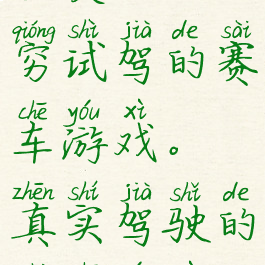 qióng shì jià de sài
穷试驾的赛
chē yóu xì
车游戏。
zhēn shí jià shǐ de
真实驾驶的